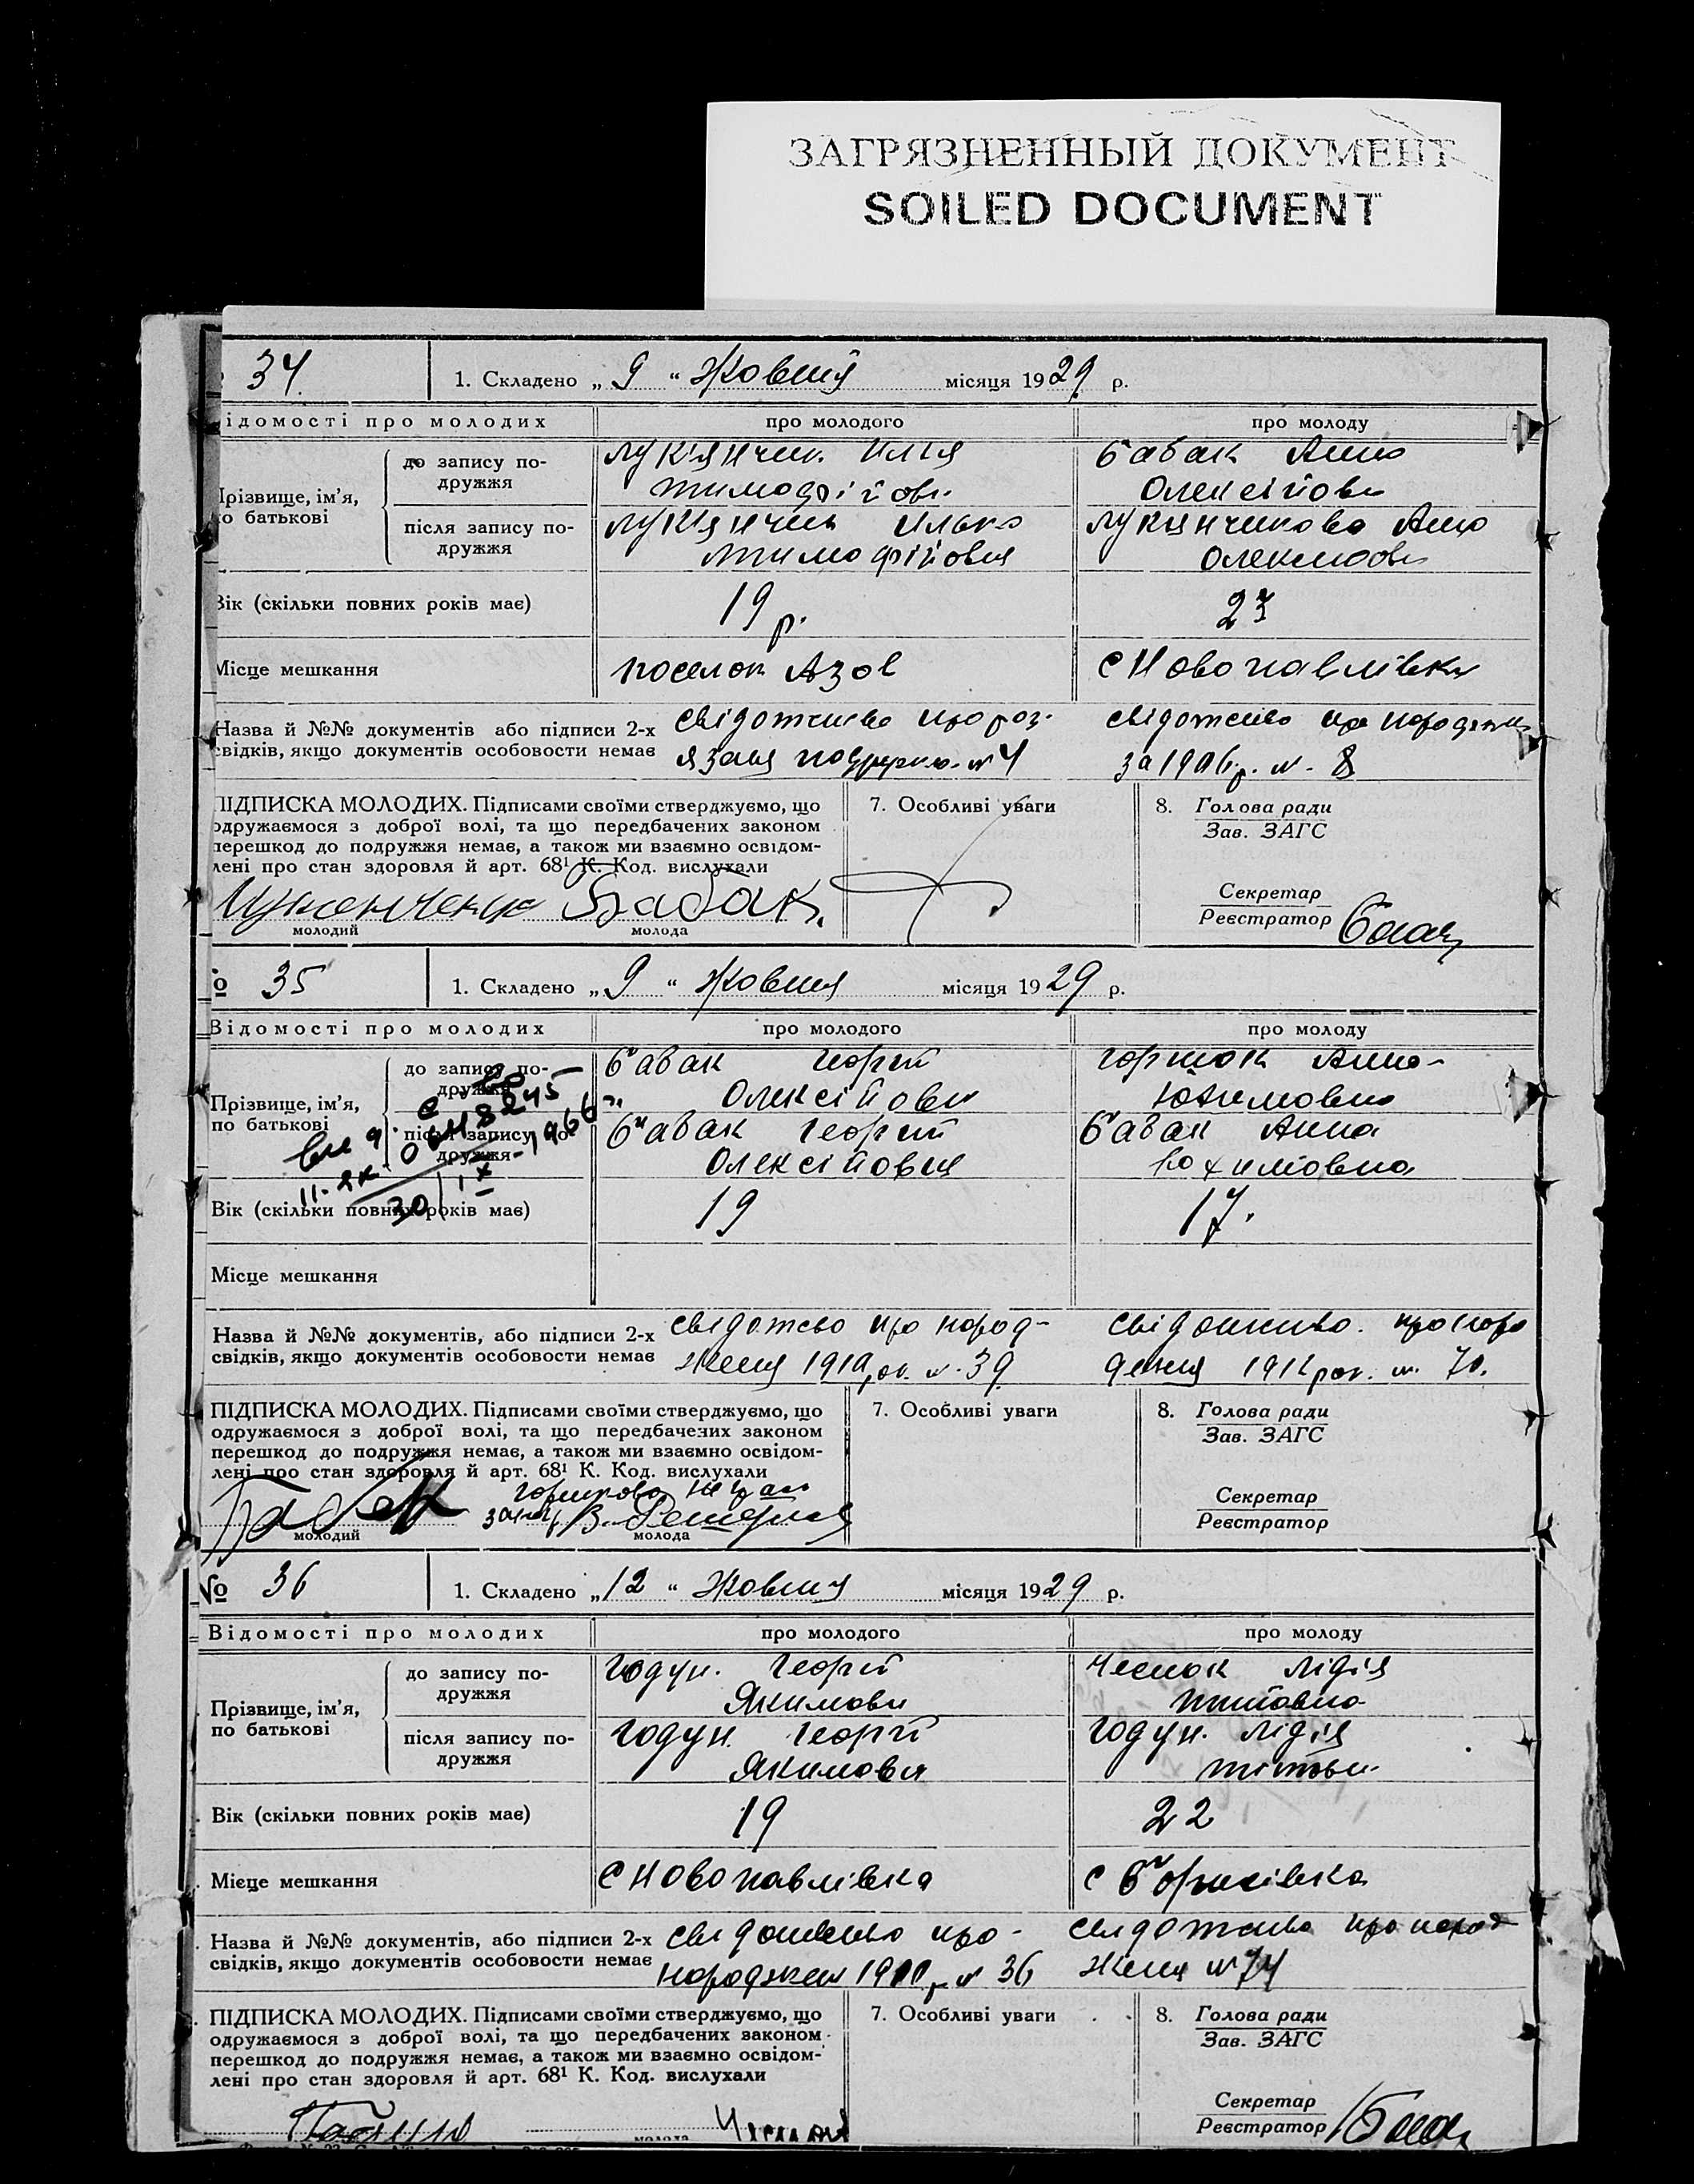 ЗАГРЯЗНЕННЫЙ ДОКУМЕНТ
SOILED DOCUMENT
34. 1. Складено „ 9 “ Жовтня місяця 1929 р.
ідомості про молодих про молодого про молоду
Прізвище, ім’я, по батькові
до запису подружжя
Лукянчик Илья Бабак Анна
Тимофійови Олексійовн
після запису подружжя
Лукянчик Илько Лукянчикова Анна
Тимофійовия
Вік (скільки повних років має) 19 р. 23
Місце мешкання поселок Азов с Новопавлівка
Назва й №№ документів або підписи 2-х свідотство про роз- свідотство про народження
свідків, якщо документів особовости немає № 4 за 1906 р. №. 8
ПІДПИСКА МОЛОДИХ. Підписами своїми стверджуємо, що 7. Особливі уваги 8. Голова ради
одружаємося з доброї волі, та що передбачених законом Зав. ЗАГС
перешкод до подружжя немає, а також ми взаємно освідом-
лені про стан здоров’я й арт. 68¹ К. Код. вислухали
Секретар
Бабак. Реєстратор
молодий молода
№ 35 1. Складено „ 9 “ Жовтня місяця 1929 р.
Відомості про молодих про молодого про молоду
Прізвище, ім’я, по батькові
до запису подружжя
Бабак Георгій Горшок Анна
Олексійови Юхимовна
після запису подружжя
Бабак Георгій Бабак Анна
Олексійовия Юхимовна
30/IX-1966
Вік (скільки повних років має) 19 17.
Місце мешкання
Назва й №№ документів, або підписи 2-х свідотсво про народ- свідотство про народ
свідків, якщо документів особовости немає женя 1910 рок. №. 39 женя 1912 рок. №. 70.
ПІДПИСКА МОЛОДИХ. Підписами своїми стверджуємо, що 7. Особливі уваги 8. Голова ради
одружаємося з доброї волі, та що передбачених законом Зав. ЗАГС
перешкод до подружжя немає, а також ми взаємно освідом-
лені про стан здоров’я й арт. 68¹ К. Код. вислухали
Секретар
Бабак Реєстратор
молодий молода
№ 36 1. Складено „ 12 “ Жовтня місяця 1929 р.
Відомості про молодих про молодого про молоду
Прізвище, ім’я, по батькові
до запису подружжя
Годун. Георгій Чеснок Лідія
Якимови Титовна
після запису подружжя
Годун. Георгій Годун. Лідія
Якимовия Титовн
Вік (скільки повних років має) 19 22
Місце мешкання с Новопавлівка с Борисівка
Назва й №№ документів, або підписи 2-х свідотство про- свідотство про народ
свідків, якщо документів особовости немає народжен 1910 р № 36 женя № 74
ПІДПИСКА МОЛОДИХ. Підписами своїми стверджуємо, що 7. Особливі уваги 8. Голова ради
одружаємося з доброї волі, та що передбачених законом Зав. ЗАГС
перешкод до подружжя немає, а також ми взаємно освідом-
лені про стан здоров’я й арт. 68¹ К. Код. вислухали
Секретар
Реєстратор
молода